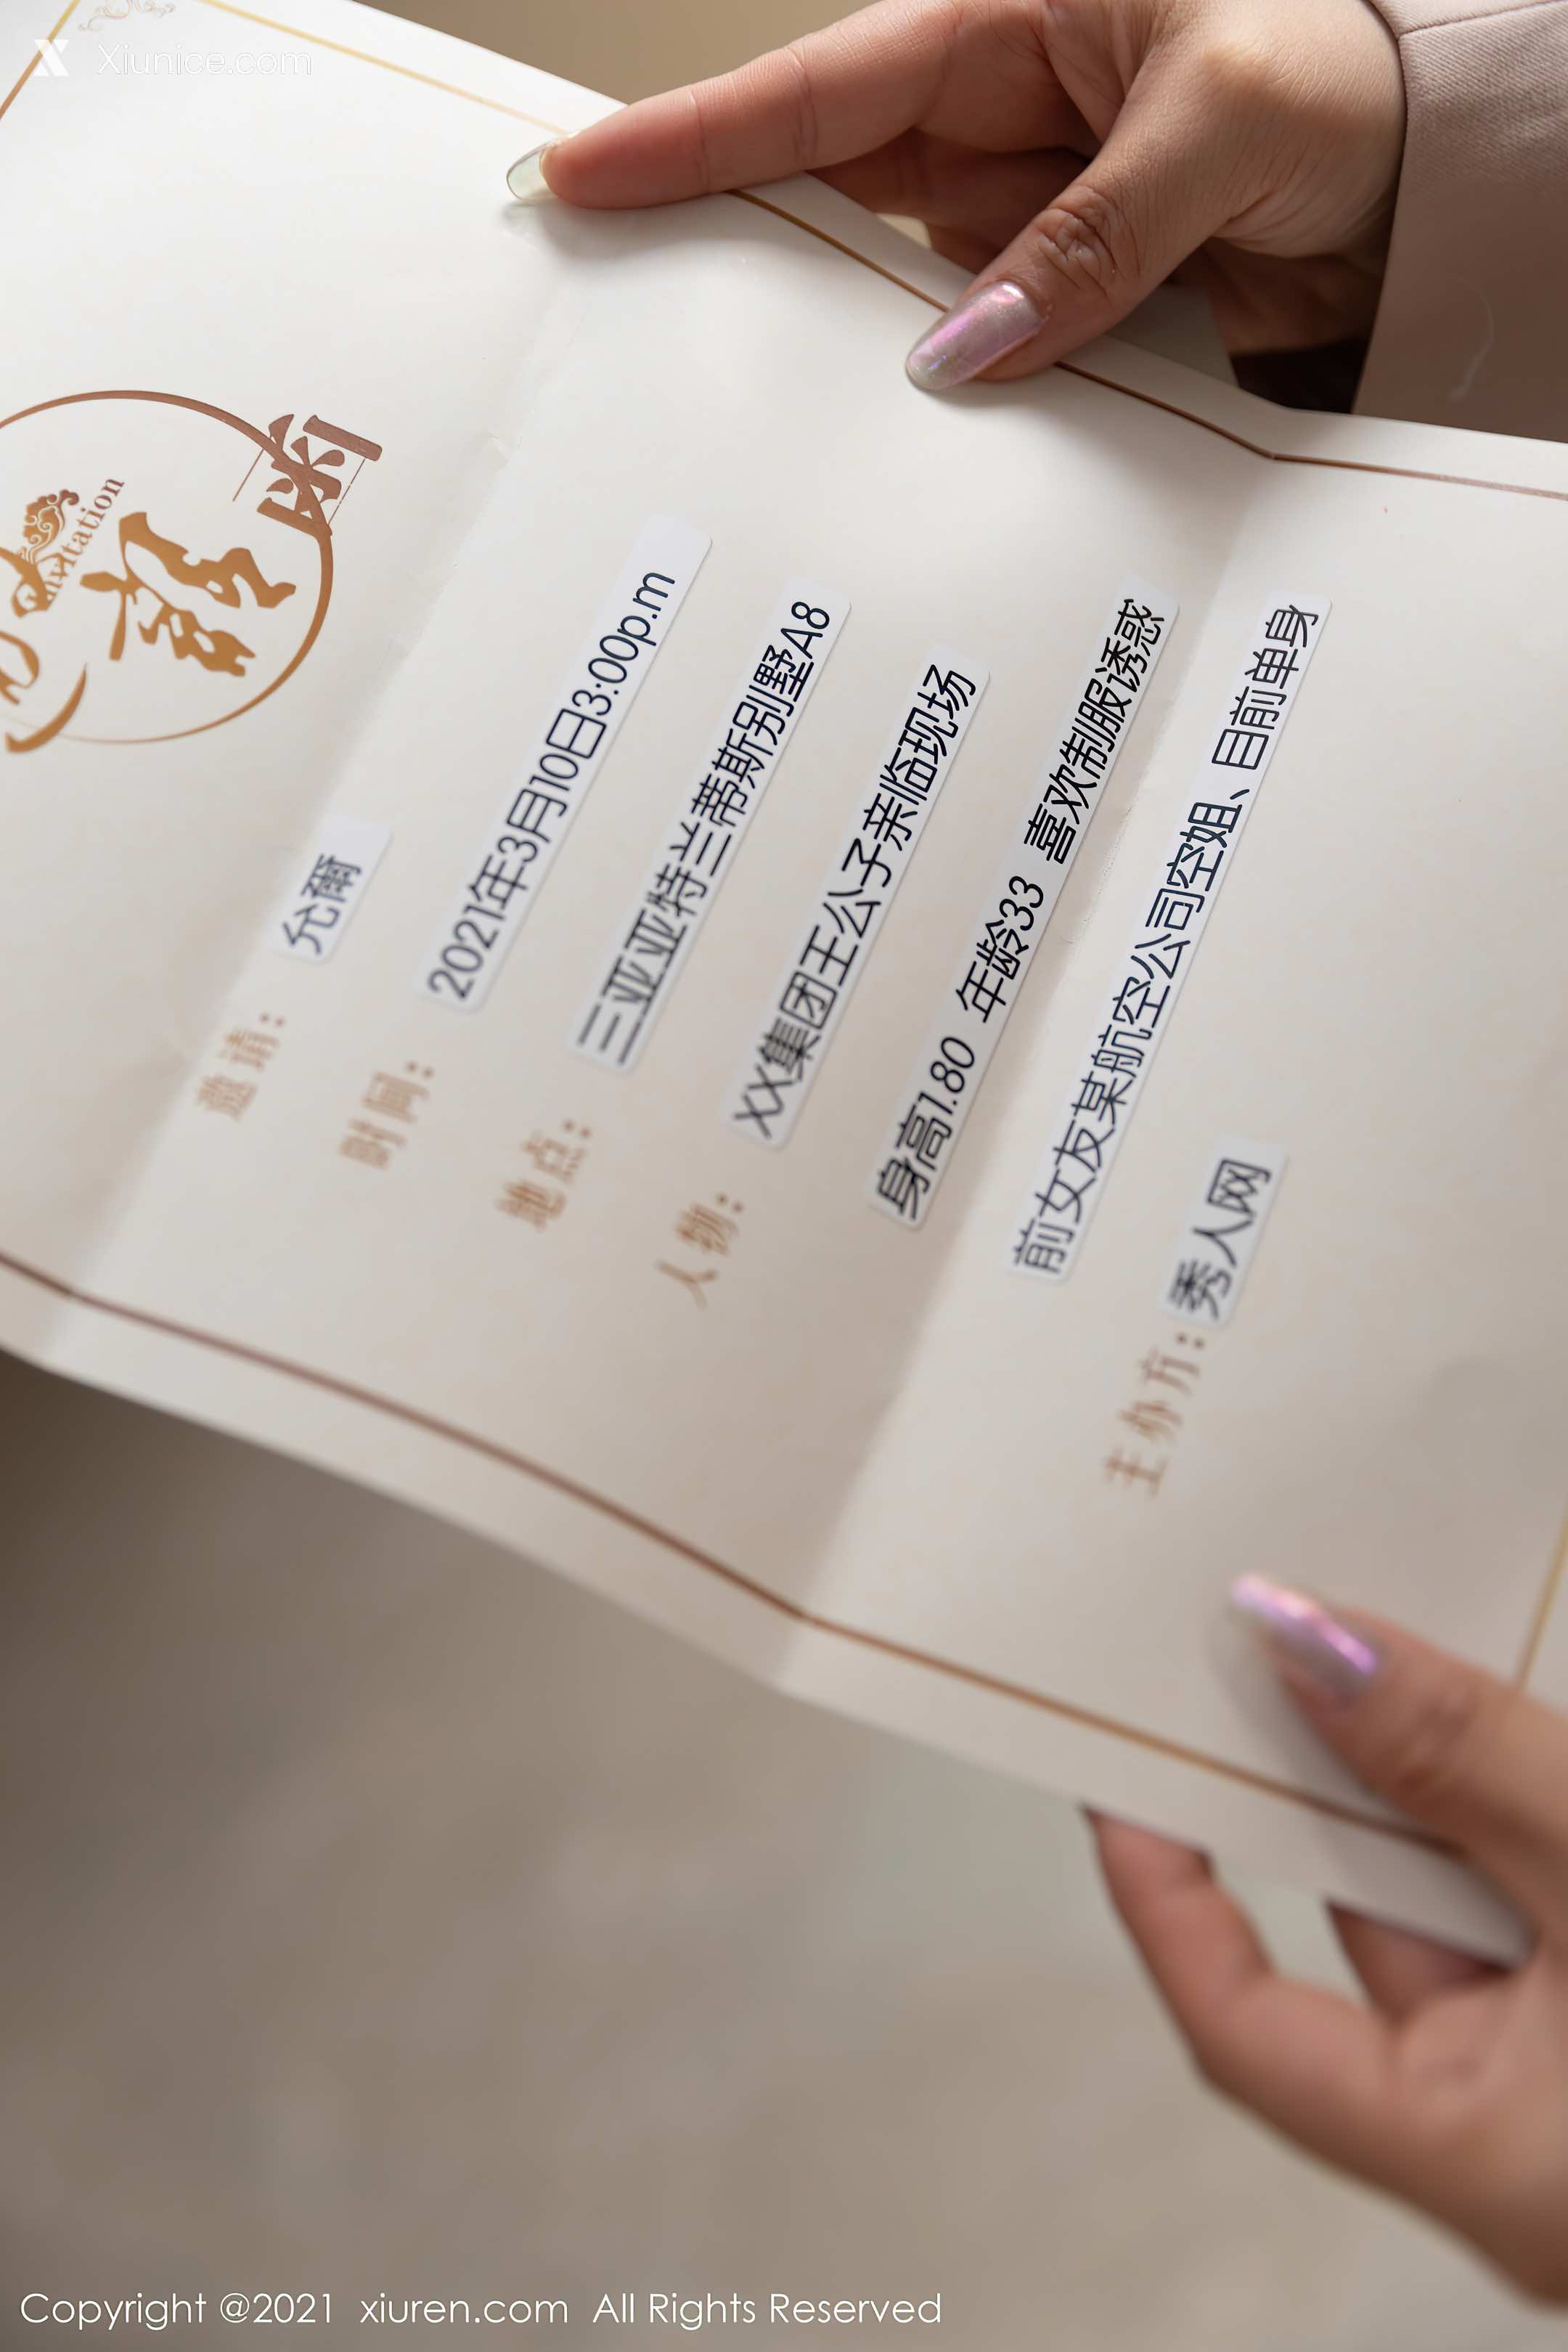 Xiunice.com
邀请函
Invitation
邀请：允爾
时间：2021年3月10日3:00p.m
地点：三亚亚特兰蒂斯别墅A8
人物：XX集团王公子亲临现场
身高1.80 年龄33 喜欢制服诱惑
前女友某航空公司空姐、目前单身
主办方：秀人网
Copyright @2021 xiuren.com All Rights Reserved